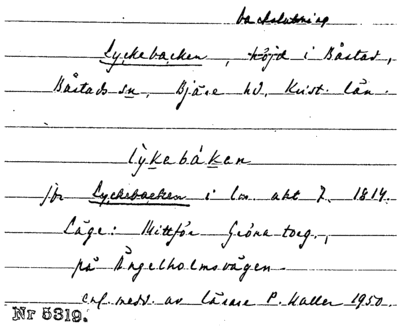 backsluttning
Lyckebacken, höjd i Båstad,
Båstads sn, Bjäre hd, Krist. län.
lỳkebákan
jfr Lyckebacken i lm. akt 7. 1814.
Läge: Mittför Gröna torg,
på Ängelholmsvägen
enl. medd. av lärare P. Haller 1950.
Nr 5319.